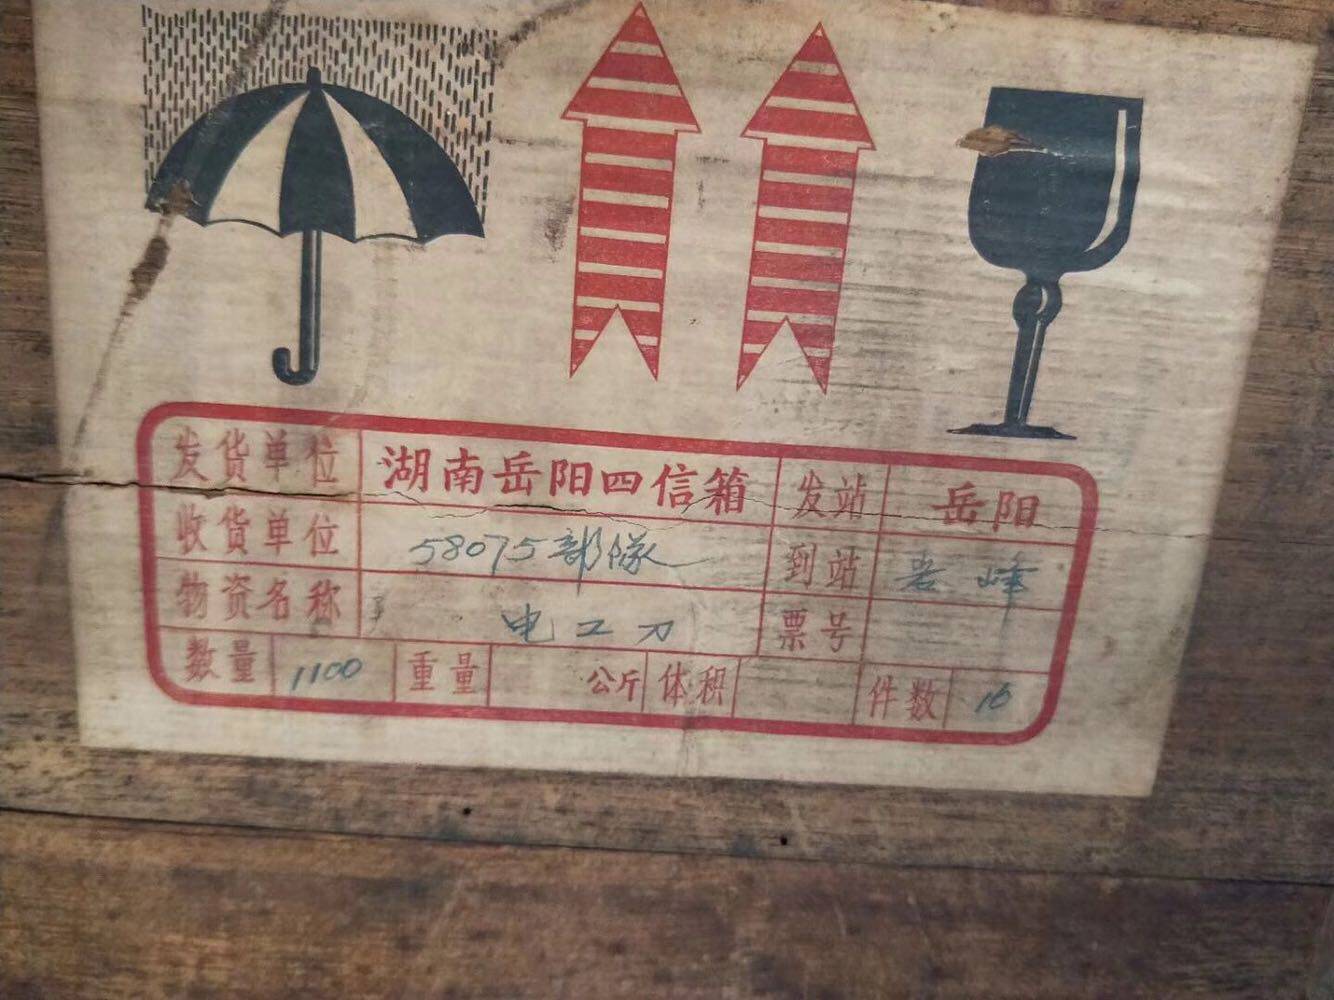 发货单位 湖南岳阳四信箱 发站 岳阳
收货单位 58075部隊 到站 峰
物资名称 电工刀 票号
数量 1100 重量 公斤 体积 件数 16